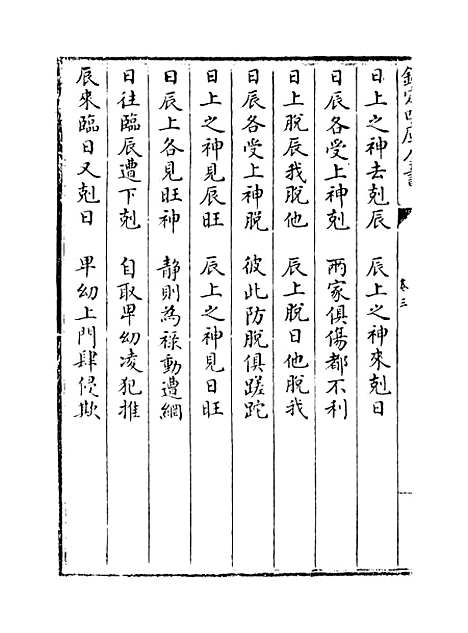 欽定四庫全書
卷三
日上之神去剋辰　辰上之神來剋日
日辰各受上神剋　兩家俱傷都不利
日上脫辰我脫他　辰上脫日他脫我
日辰各受上神脫　彼此防脫俱蹉跎
日上之神見辰旺　辰上之神見日旺
日辰上各見旺神　靜則為祿動遭網
日往臨辰遭下剋　自取卑幼凌犯推
辰來臨日又剋日　卑幼上門肆侵欺